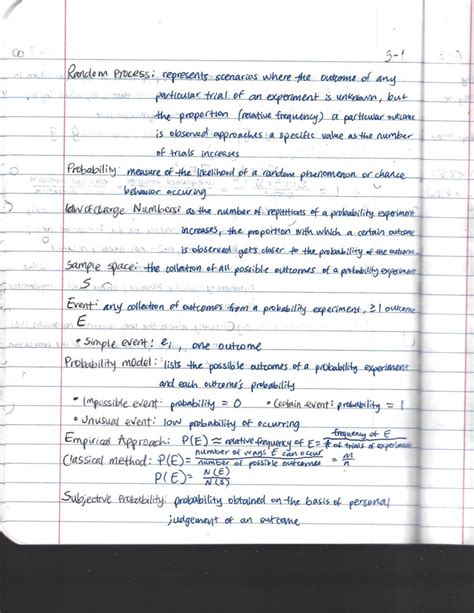 5-1
Random Process: represents scenarios where the outcome of any
particular trial of an experiment is unknown, but
the proportion (relative frequency) a particular outcome
is observed approaches a specific value as the number
of trials increases
Probability measure of the likelihood of a random phenomenon or chance
behavior occuring
Law of Large Numbers: as the number of repititions of a probability experiment
increases, the proportion with which a certain outcome
is observed gets closer to the probability of the outcome
Sample space: the collation of all possible outcomes of a probability experiment
S
Event: any collection of outcomes from a probability experiment, ≥1 outcome
E
• Simple event: ei, one outcome
Probability model: lists the possible outcomes of a probability experiment
and each outcome's probability
• Impossible event: probability = 0 • Certain event: probability = 1
• Unusual event: low probability of occurring
Empirical Approach: P(E) ≈ relative frequency of E = frequency of E / # of trials of experiment
Classical method: P(E) = number of ways E can occur / number of possible outcomes = m/n
P(E) = N(E)/N(S)
Subjective Probability: probability obtained on the basis of personal
judgement of an outcome